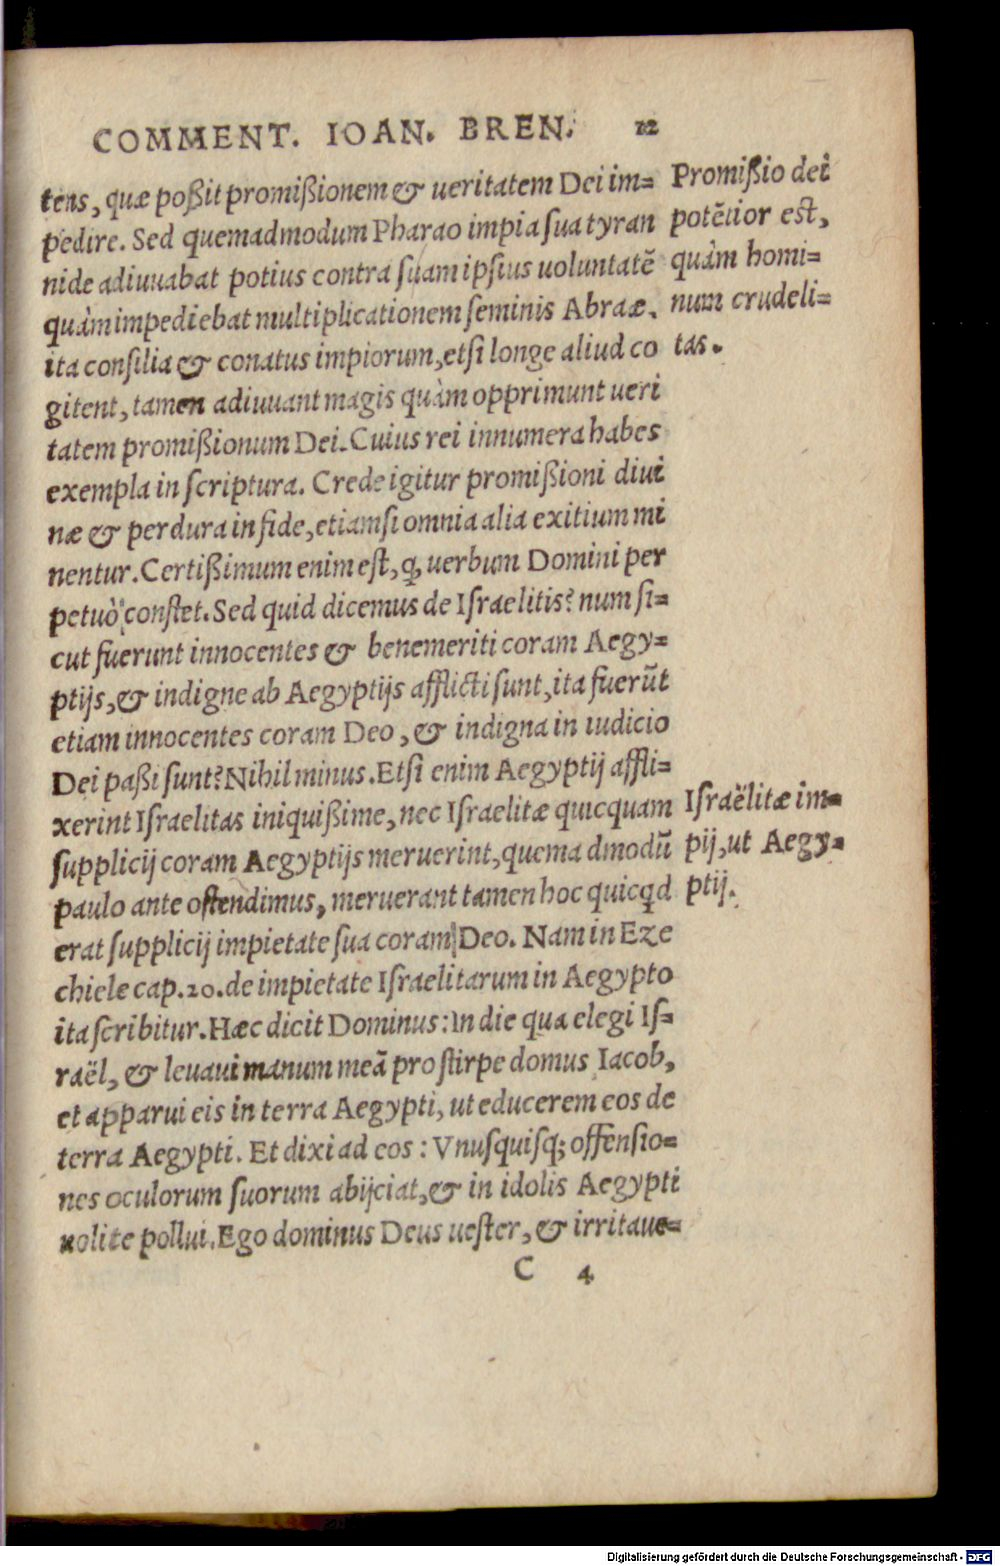 COMMENT. IOAN. BREN. 12
tens, quæ poßit promißionem & ueritatem Dei im=
pedire. Sed quemadmodum Pharao impia sua tyran
nide adiuuabat potius contra suam ipsius uoluntatē
quàm impediebat multiplicationem seminis Abraæ,
ita consilia & conatus impiorum, etsi longe aliud co
gitent, tamen adiuuant magis quàm opprimunt ueri
tatem promißionum Dei. Cuius rei innumera habes
exempla in scriptura. Crede igitur promißioni diui
næ & perdura in fide, etiamsi omnia alia exitium mi
nentur. Certißimum enim est, ꝙ uerbum Domini per
petuò constet. Sed quid dicemus de Israelitis? num si=
cut fuerunt innocentes & benemeriti coram Aegy=
ptijs, & indigne ab Aegyptijs afflicti sunt, ita fuerūt
etiam innocentes coram Deo, & indigna in iudicio
Dei paßi sunt? Nihil minus. Etsi enim Aegyptij affli=
xerint Israelitas iniquißime, nec Israelitæ quicquam
supplicij coram Aegyptijs meruerint, quemadmodū
paulo ante ostendimus, meruerant tamen hoc quicqd
erat supplicij impietate sua coram Deo. Nam in Eze
chiele cap. 20. de impietate Israelitarum in Aegypto
ita scribitur. Hæc dicit Dominus: In die qua elegi Is=
raël, & leuaui manum meā pro stirpe domus Iacob,
et apparui eis in terra Aegypti, ut educerem eos de
terra Aegypti. Et dixi ad eos: Vnusquisq; offensio=
nes oculorum suorum abijciat, & in idolis Aegypti
nolite pollui. Ego dominus Deus uester, & irritaue=
C 4
Promißio dei
potētior est,
quàm homi=
num crudeli=
tas.
Israëlitæ im=
pij, ut Aegy=
ptij.
Digitalisierung gefördert durch die Deutsche Forschungsgemeinschaft - DFG